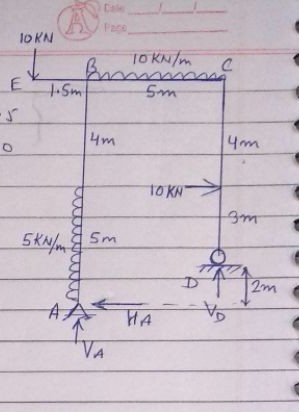 Date
Page
10KN
10 KN/m
B
C
E
1.5m
5m
5
0
4m
4m
10KN
3m
5KN/m
5m
D
2m
A
HA
VD
VA